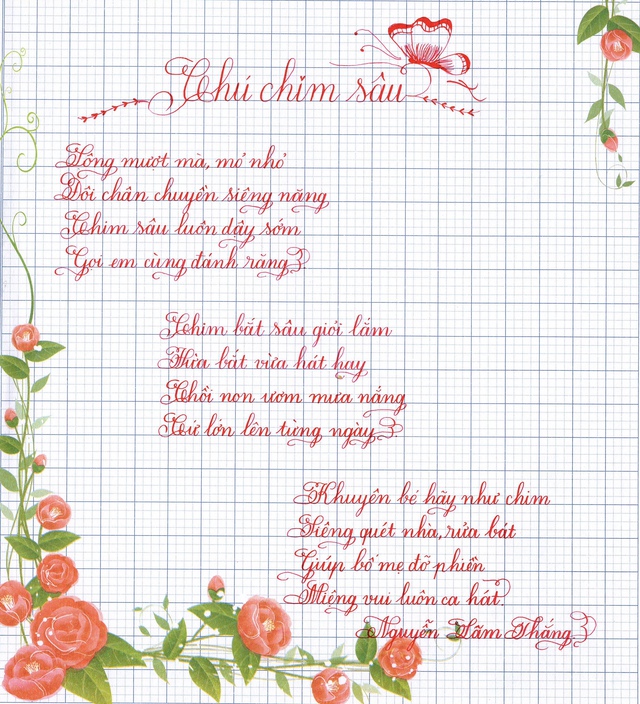 Chú chim sâu
Lông mượt mà, mỏ nhỏ
Đôi chân chuyền siêng năng
Chim sâu luôn dậy sớm
Gọi em cùng đánh răng.
Chim bắt sâu giỏi lắm
Vừa bắt vừa hát hay
Chồi non ươm mưa nắng
Cứ lớn lên từng ngày.
Khuyên bé hãy như chim
Siêng quét nhà, rửa bát
Giúp bố mẹ đỡ phiền
Miệng vui luôn ca hát.
Nguyễn Lãm Thắng